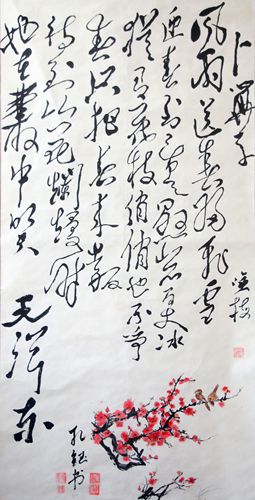 卜算子
詠梅
风雨送春归飛雪
迎春到已是懸崖百丈冰
犹有花枝俏俏也不争
春只把春来報
待到山花爛熳时
她在叢中笑 毛泽东
孔钰书